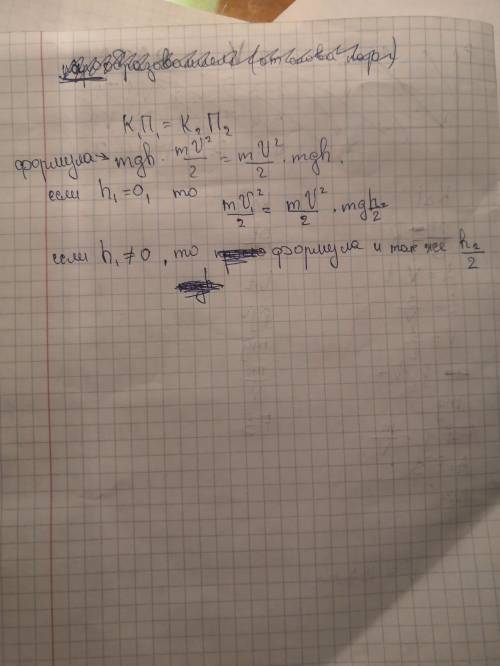 K₁П₁ = K₂П₂
формула → mgh · mV²/2 = mV²/2 · mgh.
если h₁ = 0, то
mV₁²/2 = mV²/2 · mgh₂/2
если h₁ ≠ 0, то формула и так же h₂/2